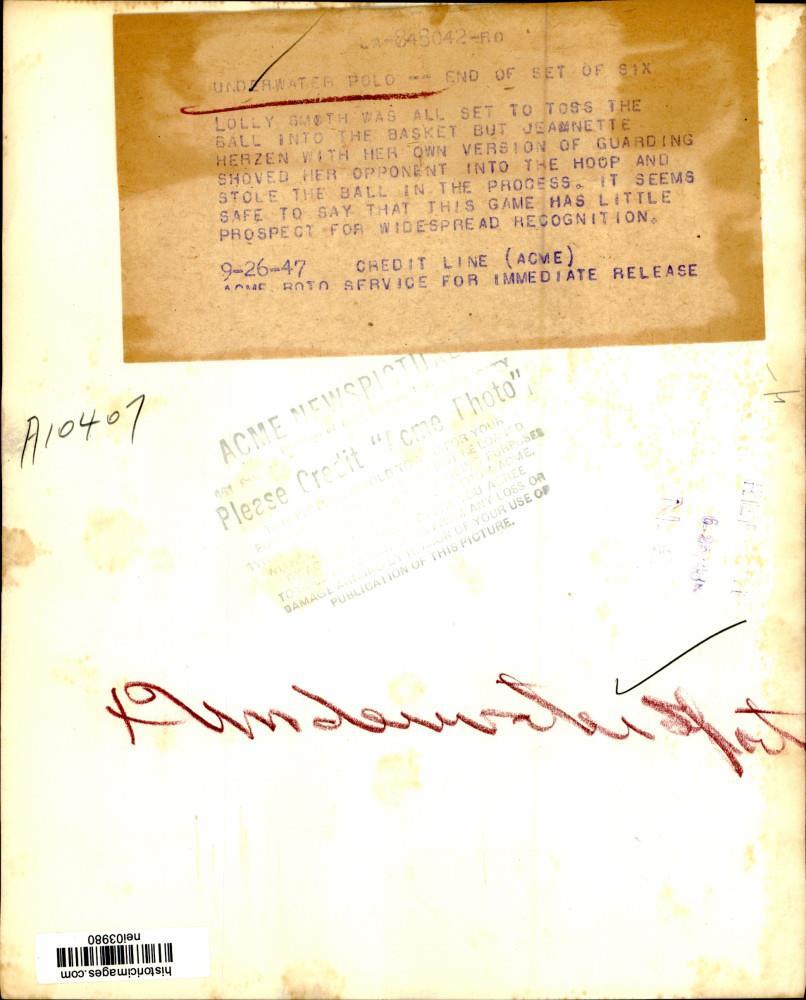 848042-RO
UNDERWATER POLO -- END OF SET OF SIX
LOLLY SMOTH WAS ALL SET TO TOSS THE
BALL INTO THE BASKET BUT JEANNETTE
HERZEN WITH HER OWN VERSION OF GUARDING
SHOVED HER OPPONENT INTO THE HOOP AND
STOLE THE BALL IN THE PROCESS. IT SEEMS
SAFE TO SAY THAT THIS GAME HAS LITTLE
PROSPECT FOR WIDESPREAD RECOGNITION.
9-26-47 CREDIT LINE (ACME)
ACME ROTO SERVICE FOR IMMEDIATE RELEASE
A10407
ACME NEWSPICTU
Please Credit "Acme Photo"
FOR YOUR
PURPOSES
ACME.
YOU AGREE
ANY LOSS OR
DAMAGE BY REASON OF YOUR USE OR
PUBLICATION OF THIS PICTURE.
Underwater
historicimages.com
nei03980